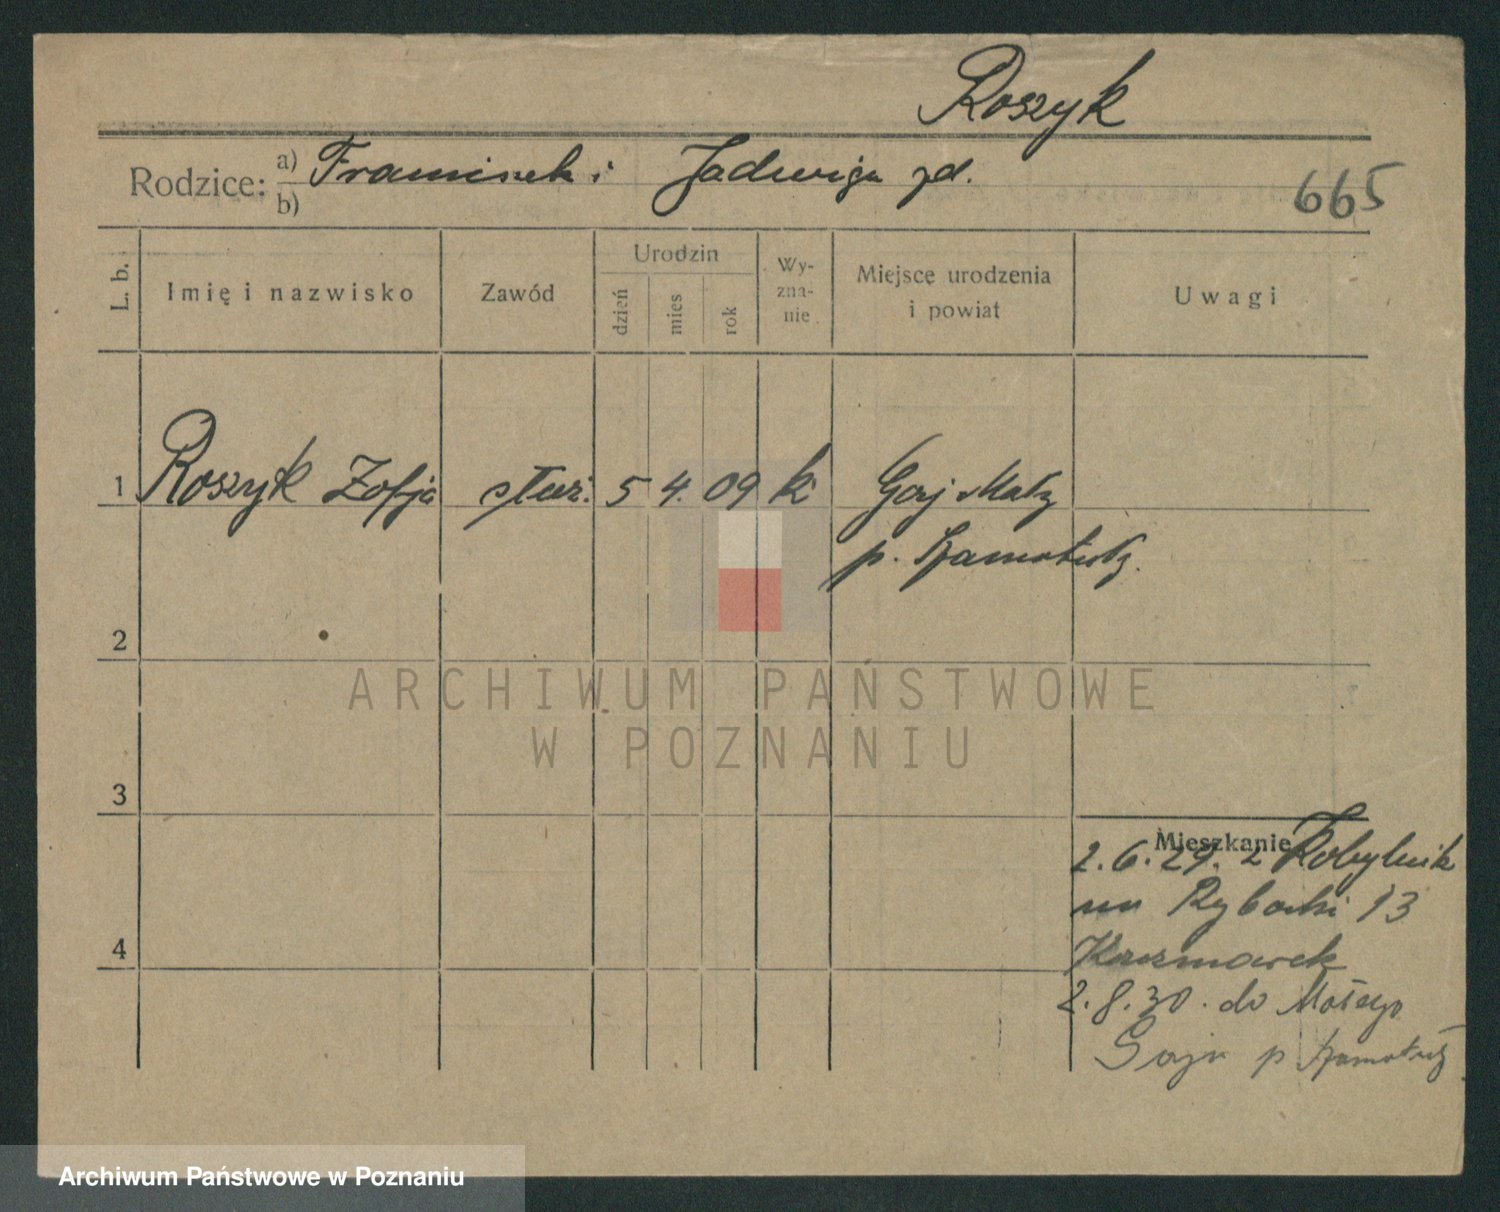 Roszyk
Rodzice: a) Franciszek i Jadwiga zd.
b)
665
L. b.
Imię i nazwisko
Zawód
Urodzin
dzień
mies
rok
Wy-
zna-
nie
Miejsce urodzenia
i powiat
Uwagi
1 Roszyk Zofja służ. 5 4. 09 k Gaj Mały
p. Szamotuły.
2
3
4
Mieszkanie
2.6.29. z Kobylnik
na Rybaki 13
Kaczmarek
2.8.30. do Małego
Gaju p Szamotuły
ARCHIWUM PAŃSTWOWE
W POZNANIU
Archiwum Państwowe w Poznaniu